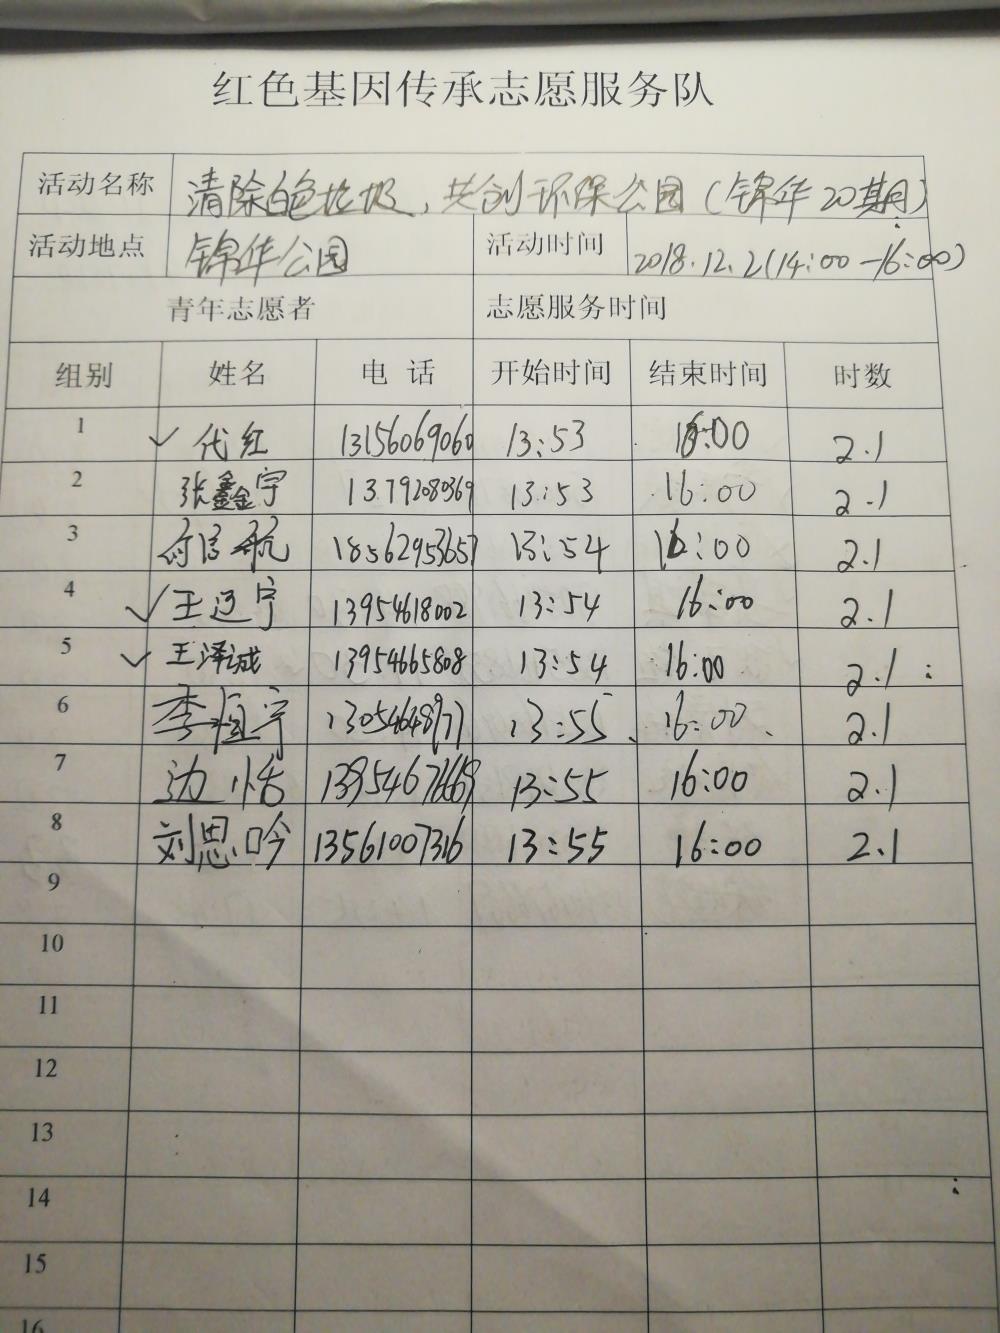 红色基因传承志愿服务队
活动名称 清除白色垃圾，共创环保公园（锦华20期）
活动地点 锦华公园 活动时间 2018.12.2(14:00-16:00)
青年志愿者 志愿服务时间
组别 姓名 电话 开始时间 结束时间 时数
1 代红 13156069060 13:53 16:00 2.1
2 张鑫宇 13792080369 13:53 16:00 2.1
3 航 18562953657 13:54 16:00 2.1
4 王辽宁 13954618002 13:54 16:00 2.1
5 王泽诚 13954665808 13:54 16:00 2.1
6 李恒宇 13:55 16:00 2.1
7 边恬 13:55 16:00 2.1
8 刘思吟 13561007316 13:55 16:00 2.1
9
10
11
12
13
14
15
16